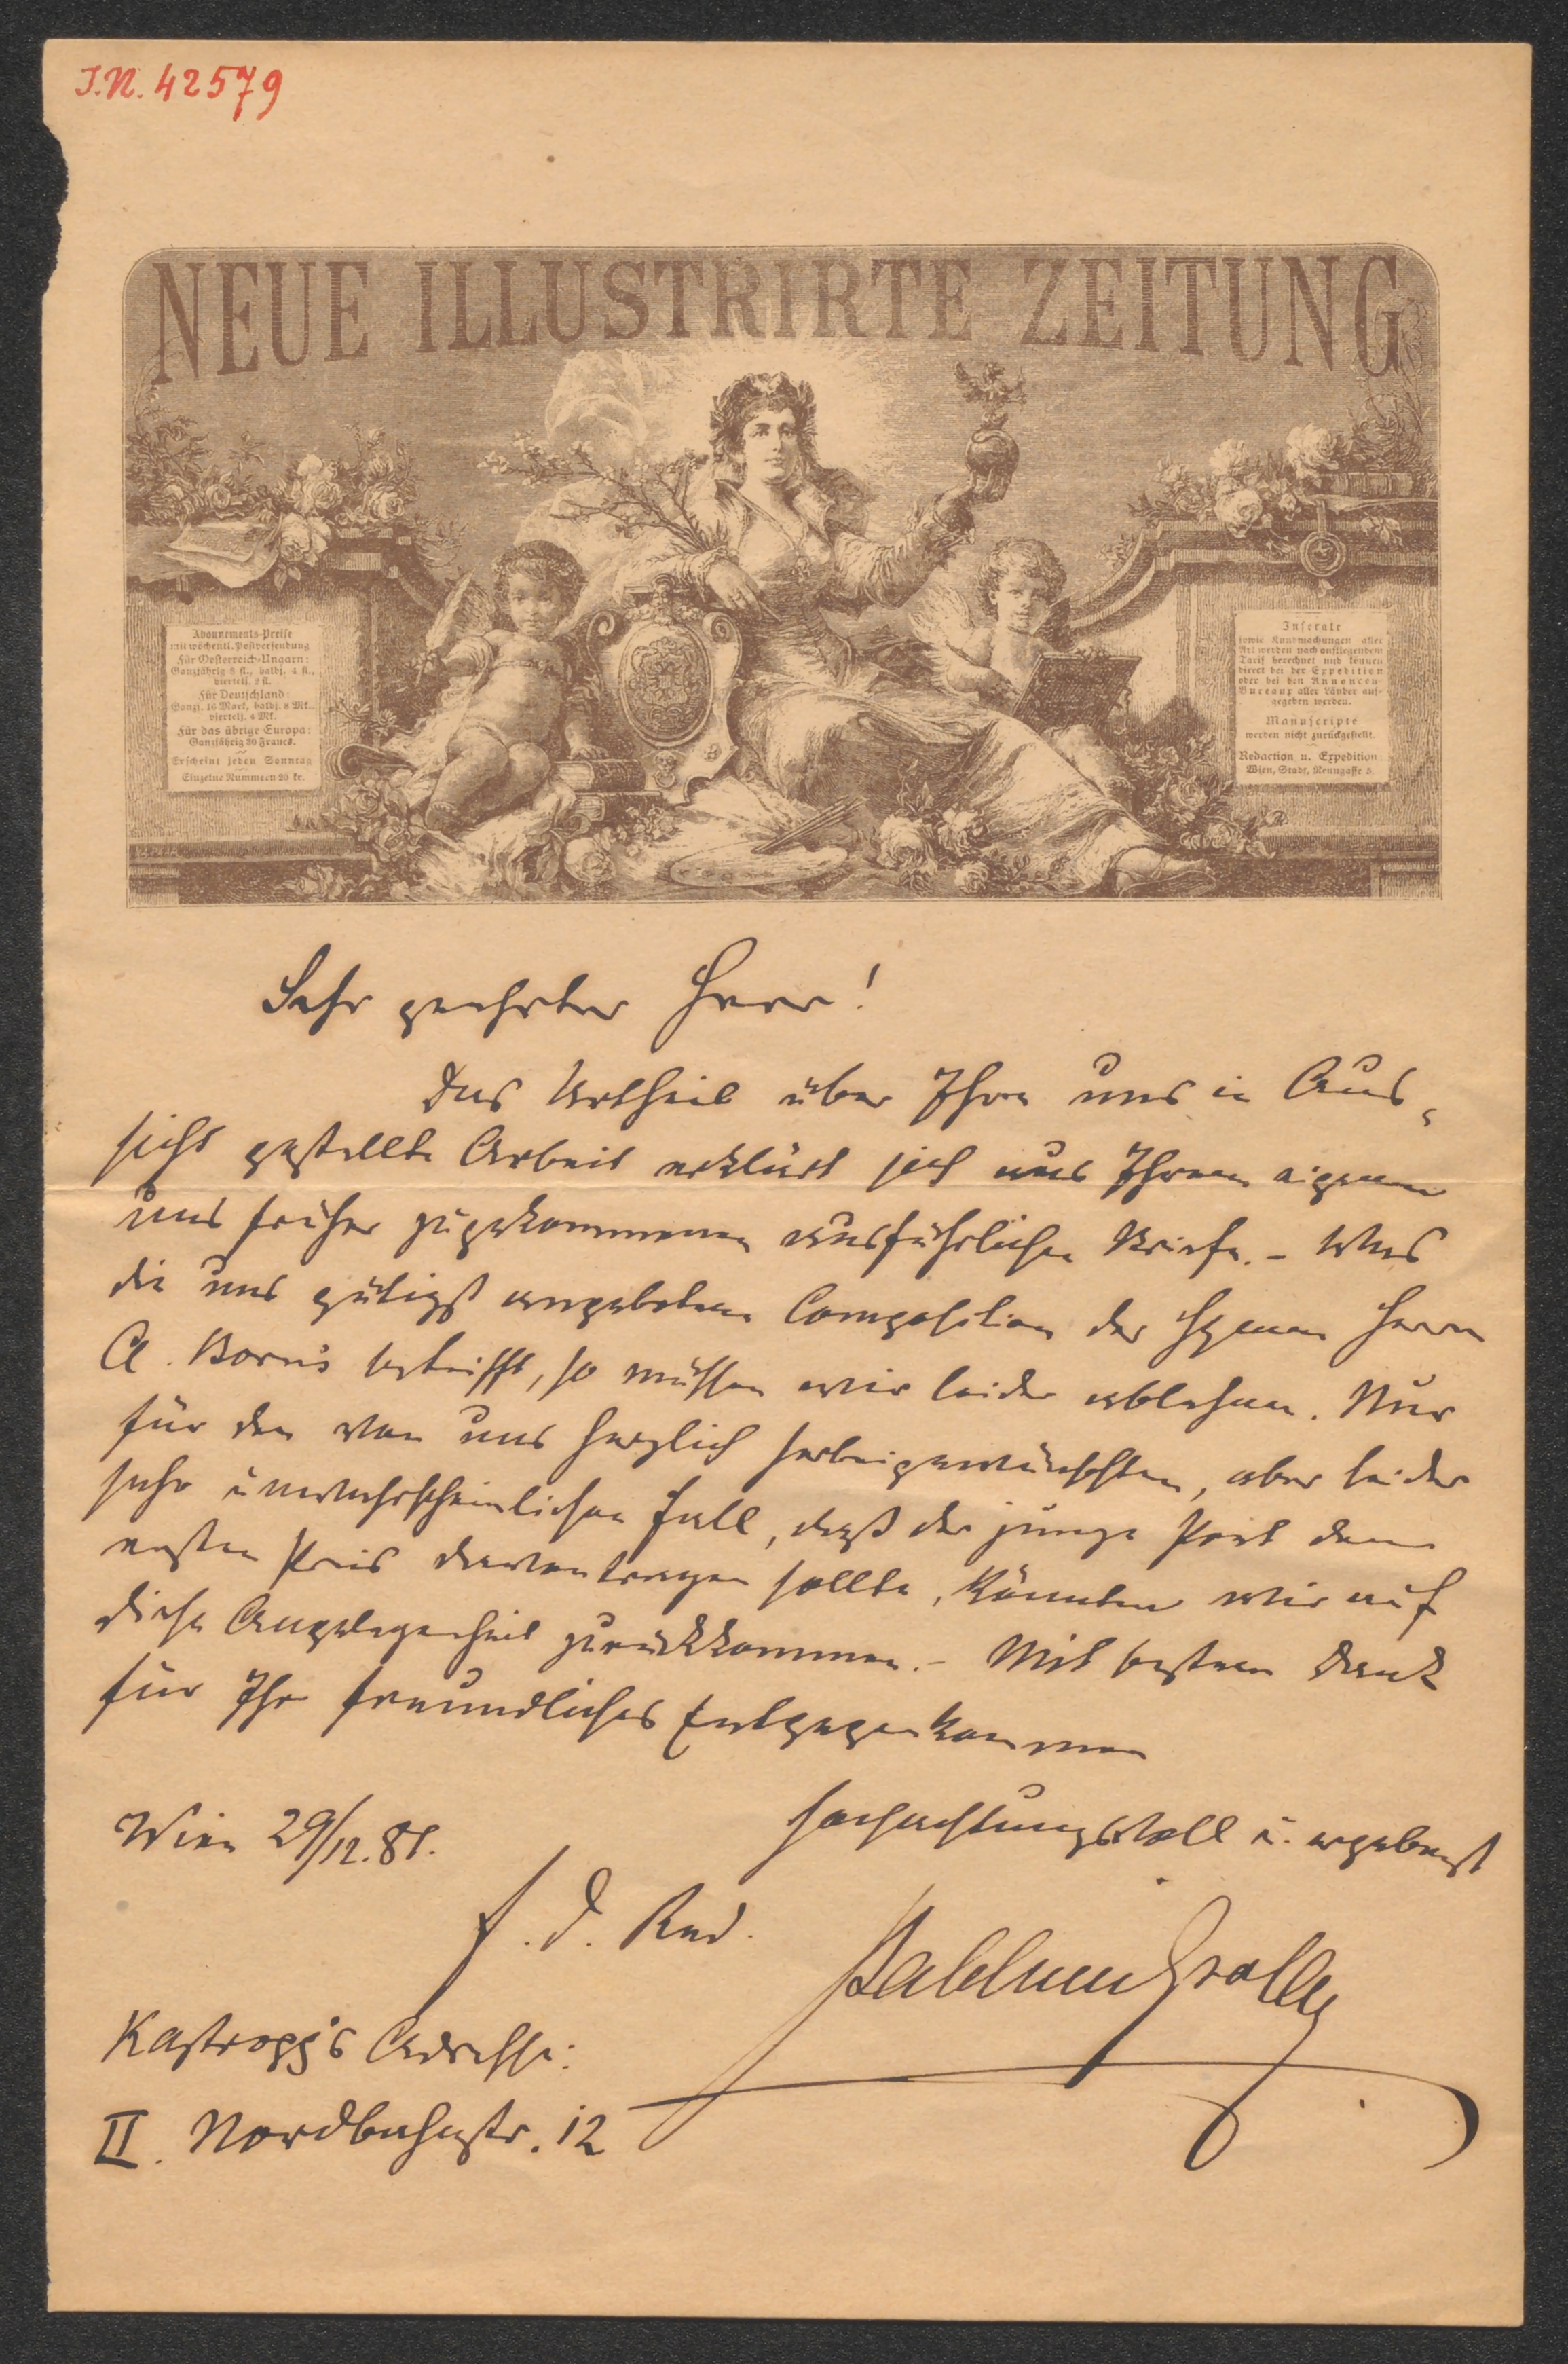 I.N. 42579
NEUE ILLUSTRIRTE ZEITUNG
Abonnements-Preise
mit wöchentl. Postversendung
Für Oesterreich-Ungarn:
Ganzjährig 8 fl., halbj. 4 fl.,
viertelj. 2 fl.
Für Deutschland:
Ganzj. 16 Mark, halbj. 8 Mk.,
viertelj. 4 Mk.
Für das übrige Europa:
Ganzjährig 30 Francs.
Erscheint jeden Sonntag
Einzelne Nummern 20 kr.
Inserate
sowie Kundmachungen aller
Art werden nach aufliegendem
Tarif berechnet und können
direct bei der Expedition
oder bei den Annoncen-
Bureaux aller Länder auf-
gegeben werden.
Manuscripte
werden nicht zurückgestellt.
Redaction u. Expedition:
Wien, Stadt, Renngasse 5.
Sehr geehrter Herr!
Das Urtheil über Ihre uns in Aus-
sicht gestellte Arbeit erklärt sich aus Ihrem eigenen
uns früher zugekommenen ausführlichen Briefe. – Was
die uns gütigst angebotene Composition der Hymne Herrn
A. Born's betrifft, so müssen wir leider ablehnen. Nur
für den von uns herzlich herbeigewünschten, aber leider
sehr unwahrscheinlichen Fall, daß der junge Poet den
ersten Preis davontragen sollte, könnten wir auf
diese Angelegenheit zurückkommen. – Mit bestem Dank
für Ihr freundliches Entgegenkommen
hochachtungsvoll u. ergebenst
Wien 29/12.81.
f. d. Red.
Balduin Groller
Kastropp's Adresse:
II. Nordbahnstr. 12